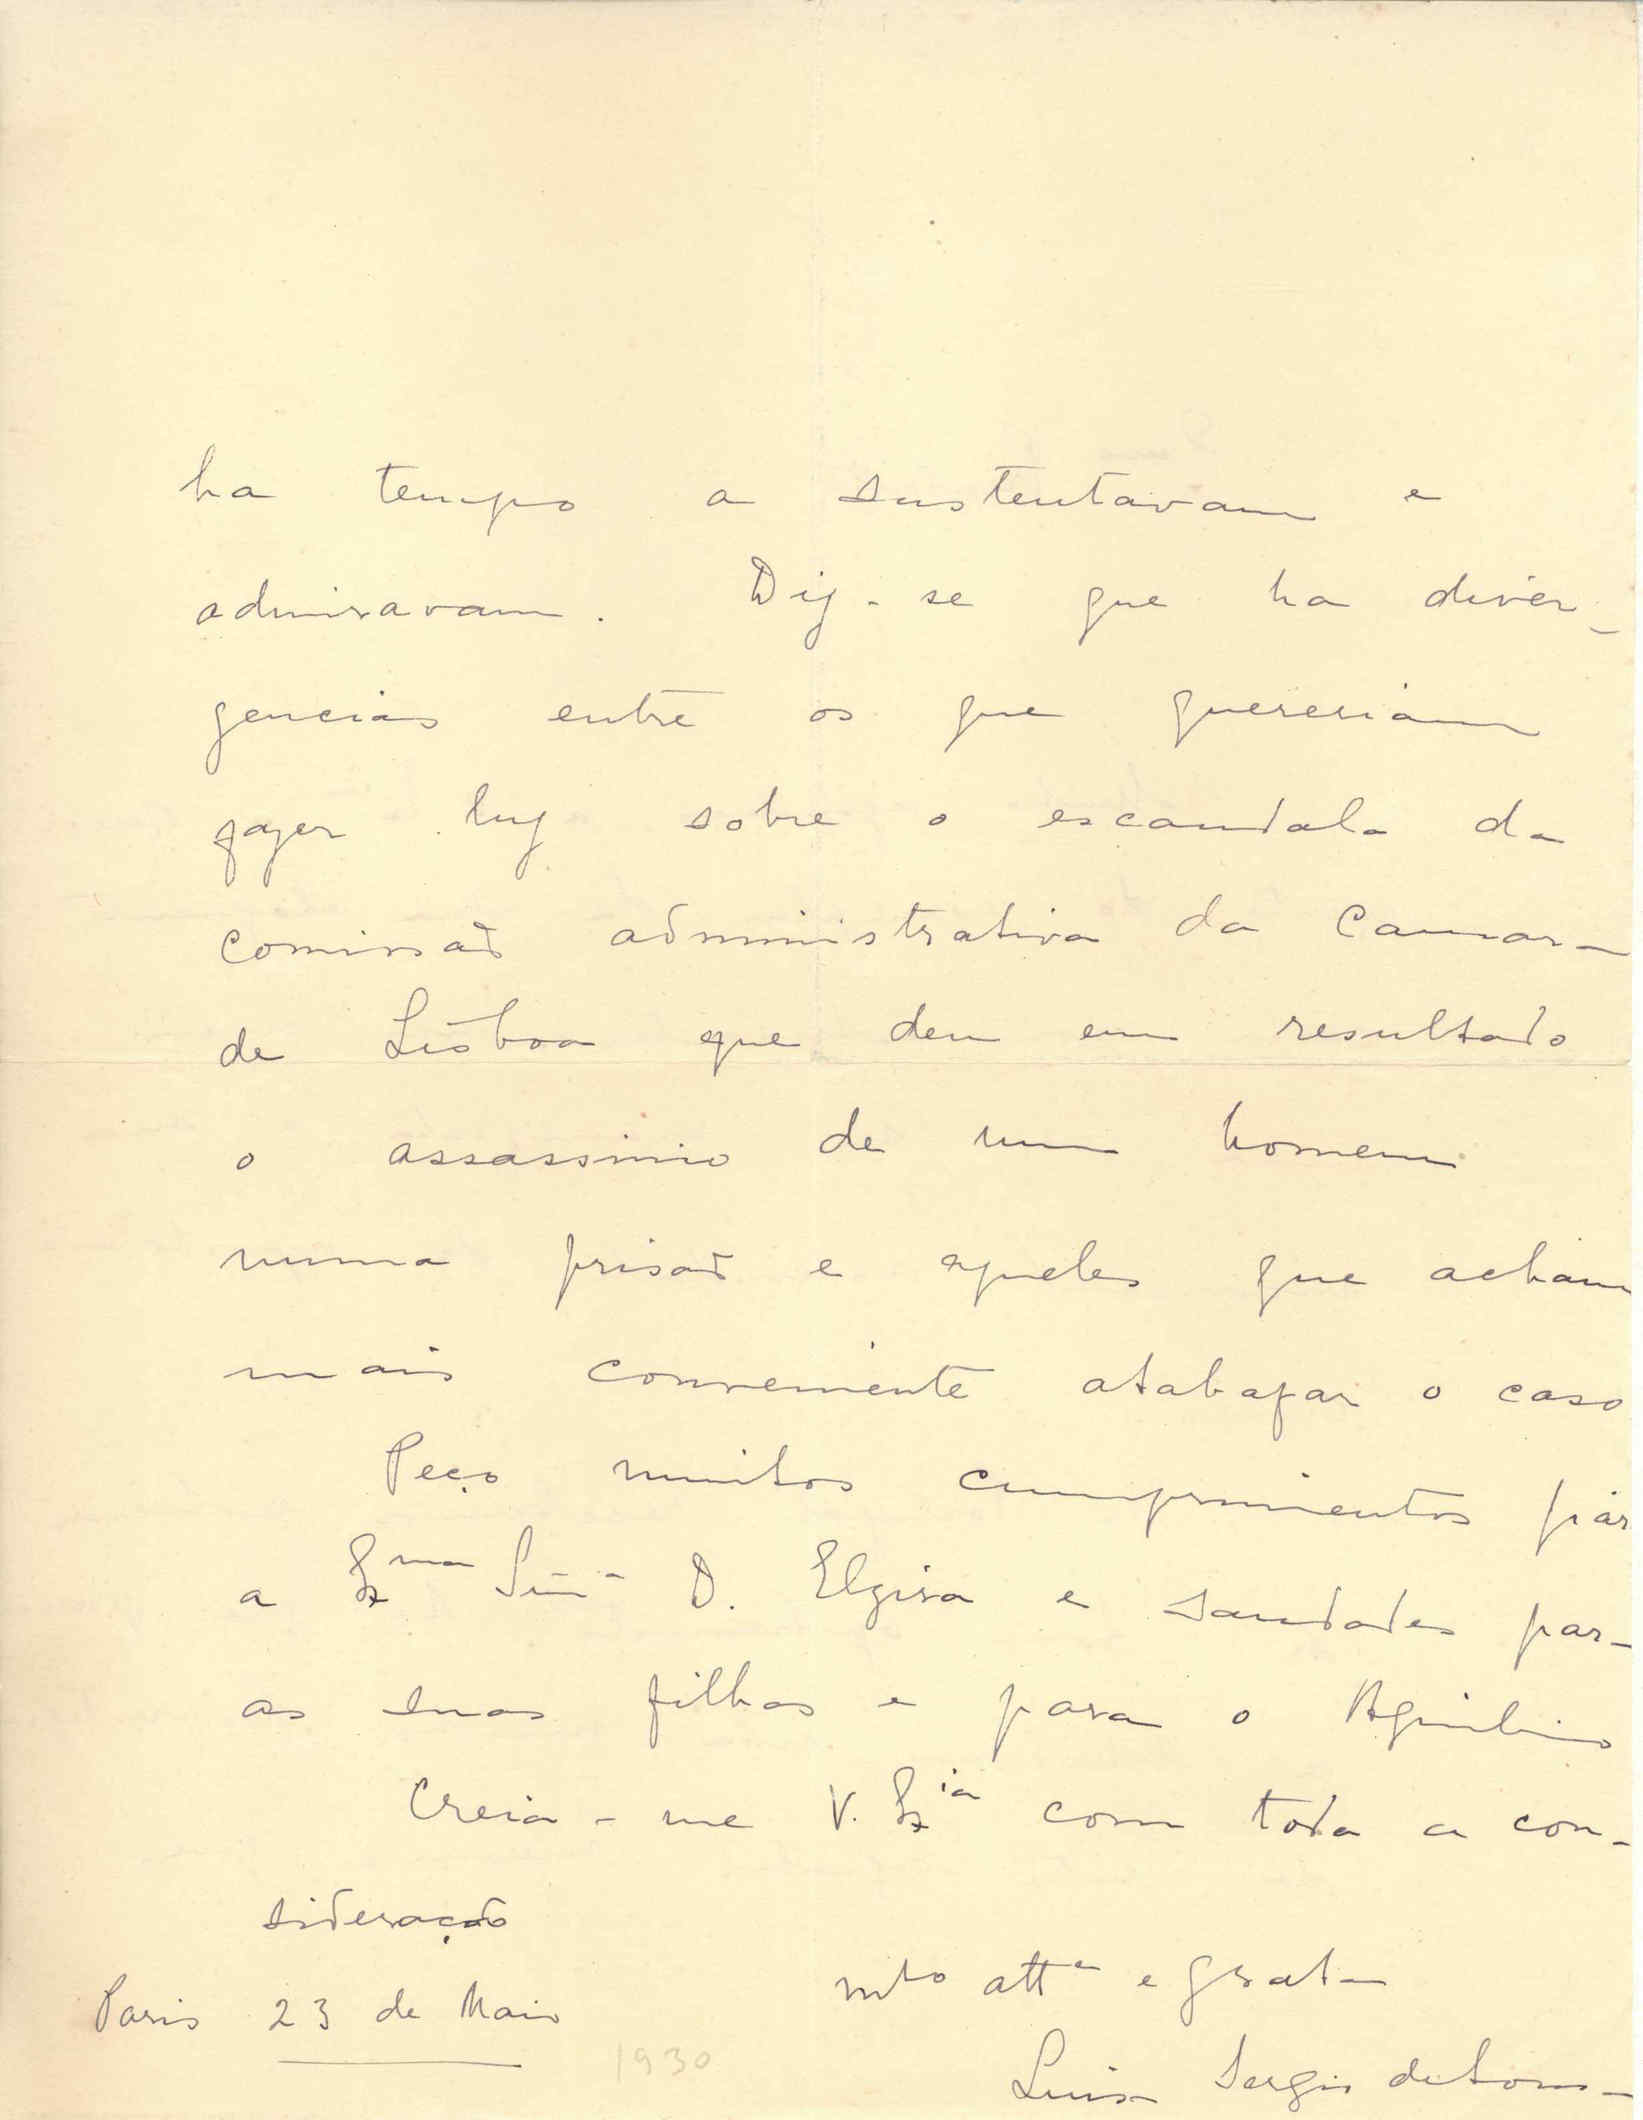 ha tempo a sustentavam e
admiravam. Diz-se que ha diver-
gencias entre os que quereriam
fazer luz sobre o escandalo da
comissaõ administrativa da Camara
de Lisboa que deu em resultado
o assassinio de um homem
numa prisaõ e aqueles que acham
mais conveniente atabafar o caso
Peço muitos cumprimentos par
a Exma Snra D. Elzira e saudades para
as suas filhas e para o Aquilino
Creia-me V. Exia com toda a con-
sideração
mto atta e grata
Paris 23 de Maio
1930
Luisa Sergio de Sousa